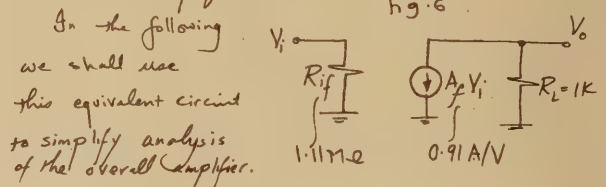 fig.6
In the following
we shall use
this equivalent circuit
to simplify analysis
of the overall amplifier.
Vi
Rif
1.11MΩ
Af Vi
0.91 A/V
Vo
RL=1K